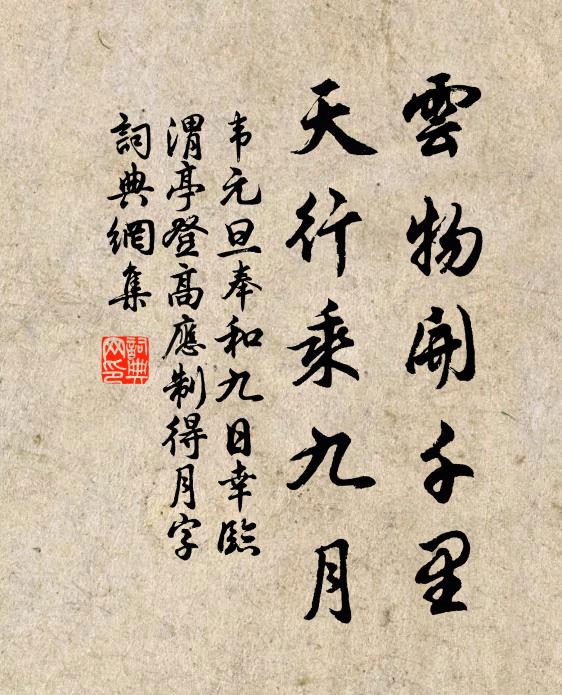 雲物開千里
天行乘九月
韦元旦奉和九日幸臨
渭亭登高應制得月字
詞典網集
詞典网印